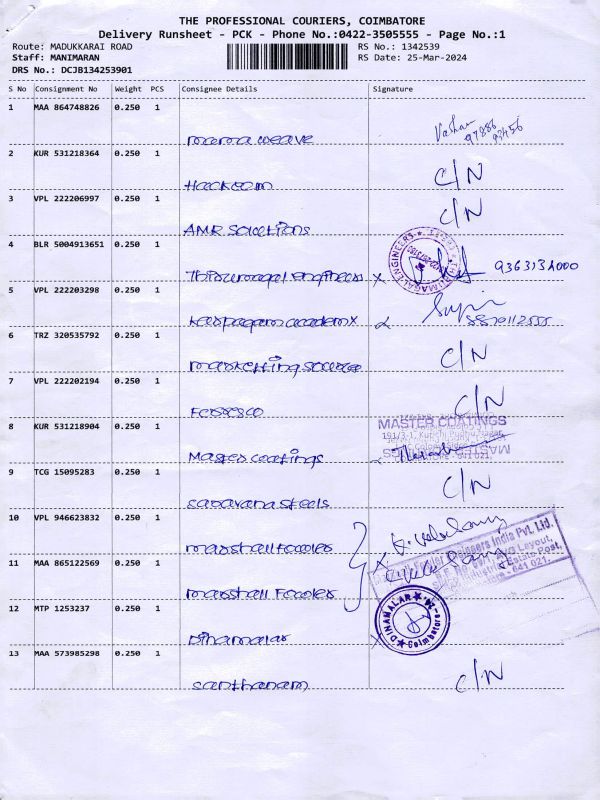 THE PROFESSIONAL COURIERS, COIMBATORE
Delivery Runsheet - PCK - Phone No.:0422-3505555 - Page No.:1
Route: MADUKKARAI ROAD RS No.: 1342539
Staff: MANIMARAN RS Date: 25-Mar-2024
DRS No.: DCJB134253901
S No Consignment No Weight PCS Consignee Details Signature
1 MAA 864748826 0.250 1
mama weave
2 KUR 531218364 0.250 1
Hackeem C/N
3 VPL 222206997 0.250 1
AMR solutions C/N
4 BLR 5004913651 0.250 1
Thirumagal engineers x
5 VPL 222203298 0.250 1
karpagam academy
6 TRZ 320535792 0.250 1
marketting source C/N
7 VPL 222202194 0.250 1
C/N
8 KUR 531218904 0.250 1
MASTER COATINGS
Master coatings
9 TCG 15095283 0.250 1
saravana steels C/N
10 VPL 946623832 0.250 1
marshall Fowler
11 MAA 865122569 0.250 1
India Pvt. Ltd.
Layout,
Estate Post,
641 021.
marshall Fowler
12 MTP 1253237 0.250 1
DINAMALAR Coimbatore
Dinamalar x
13 MAA 573985298 0.250 1
santhanam C/N